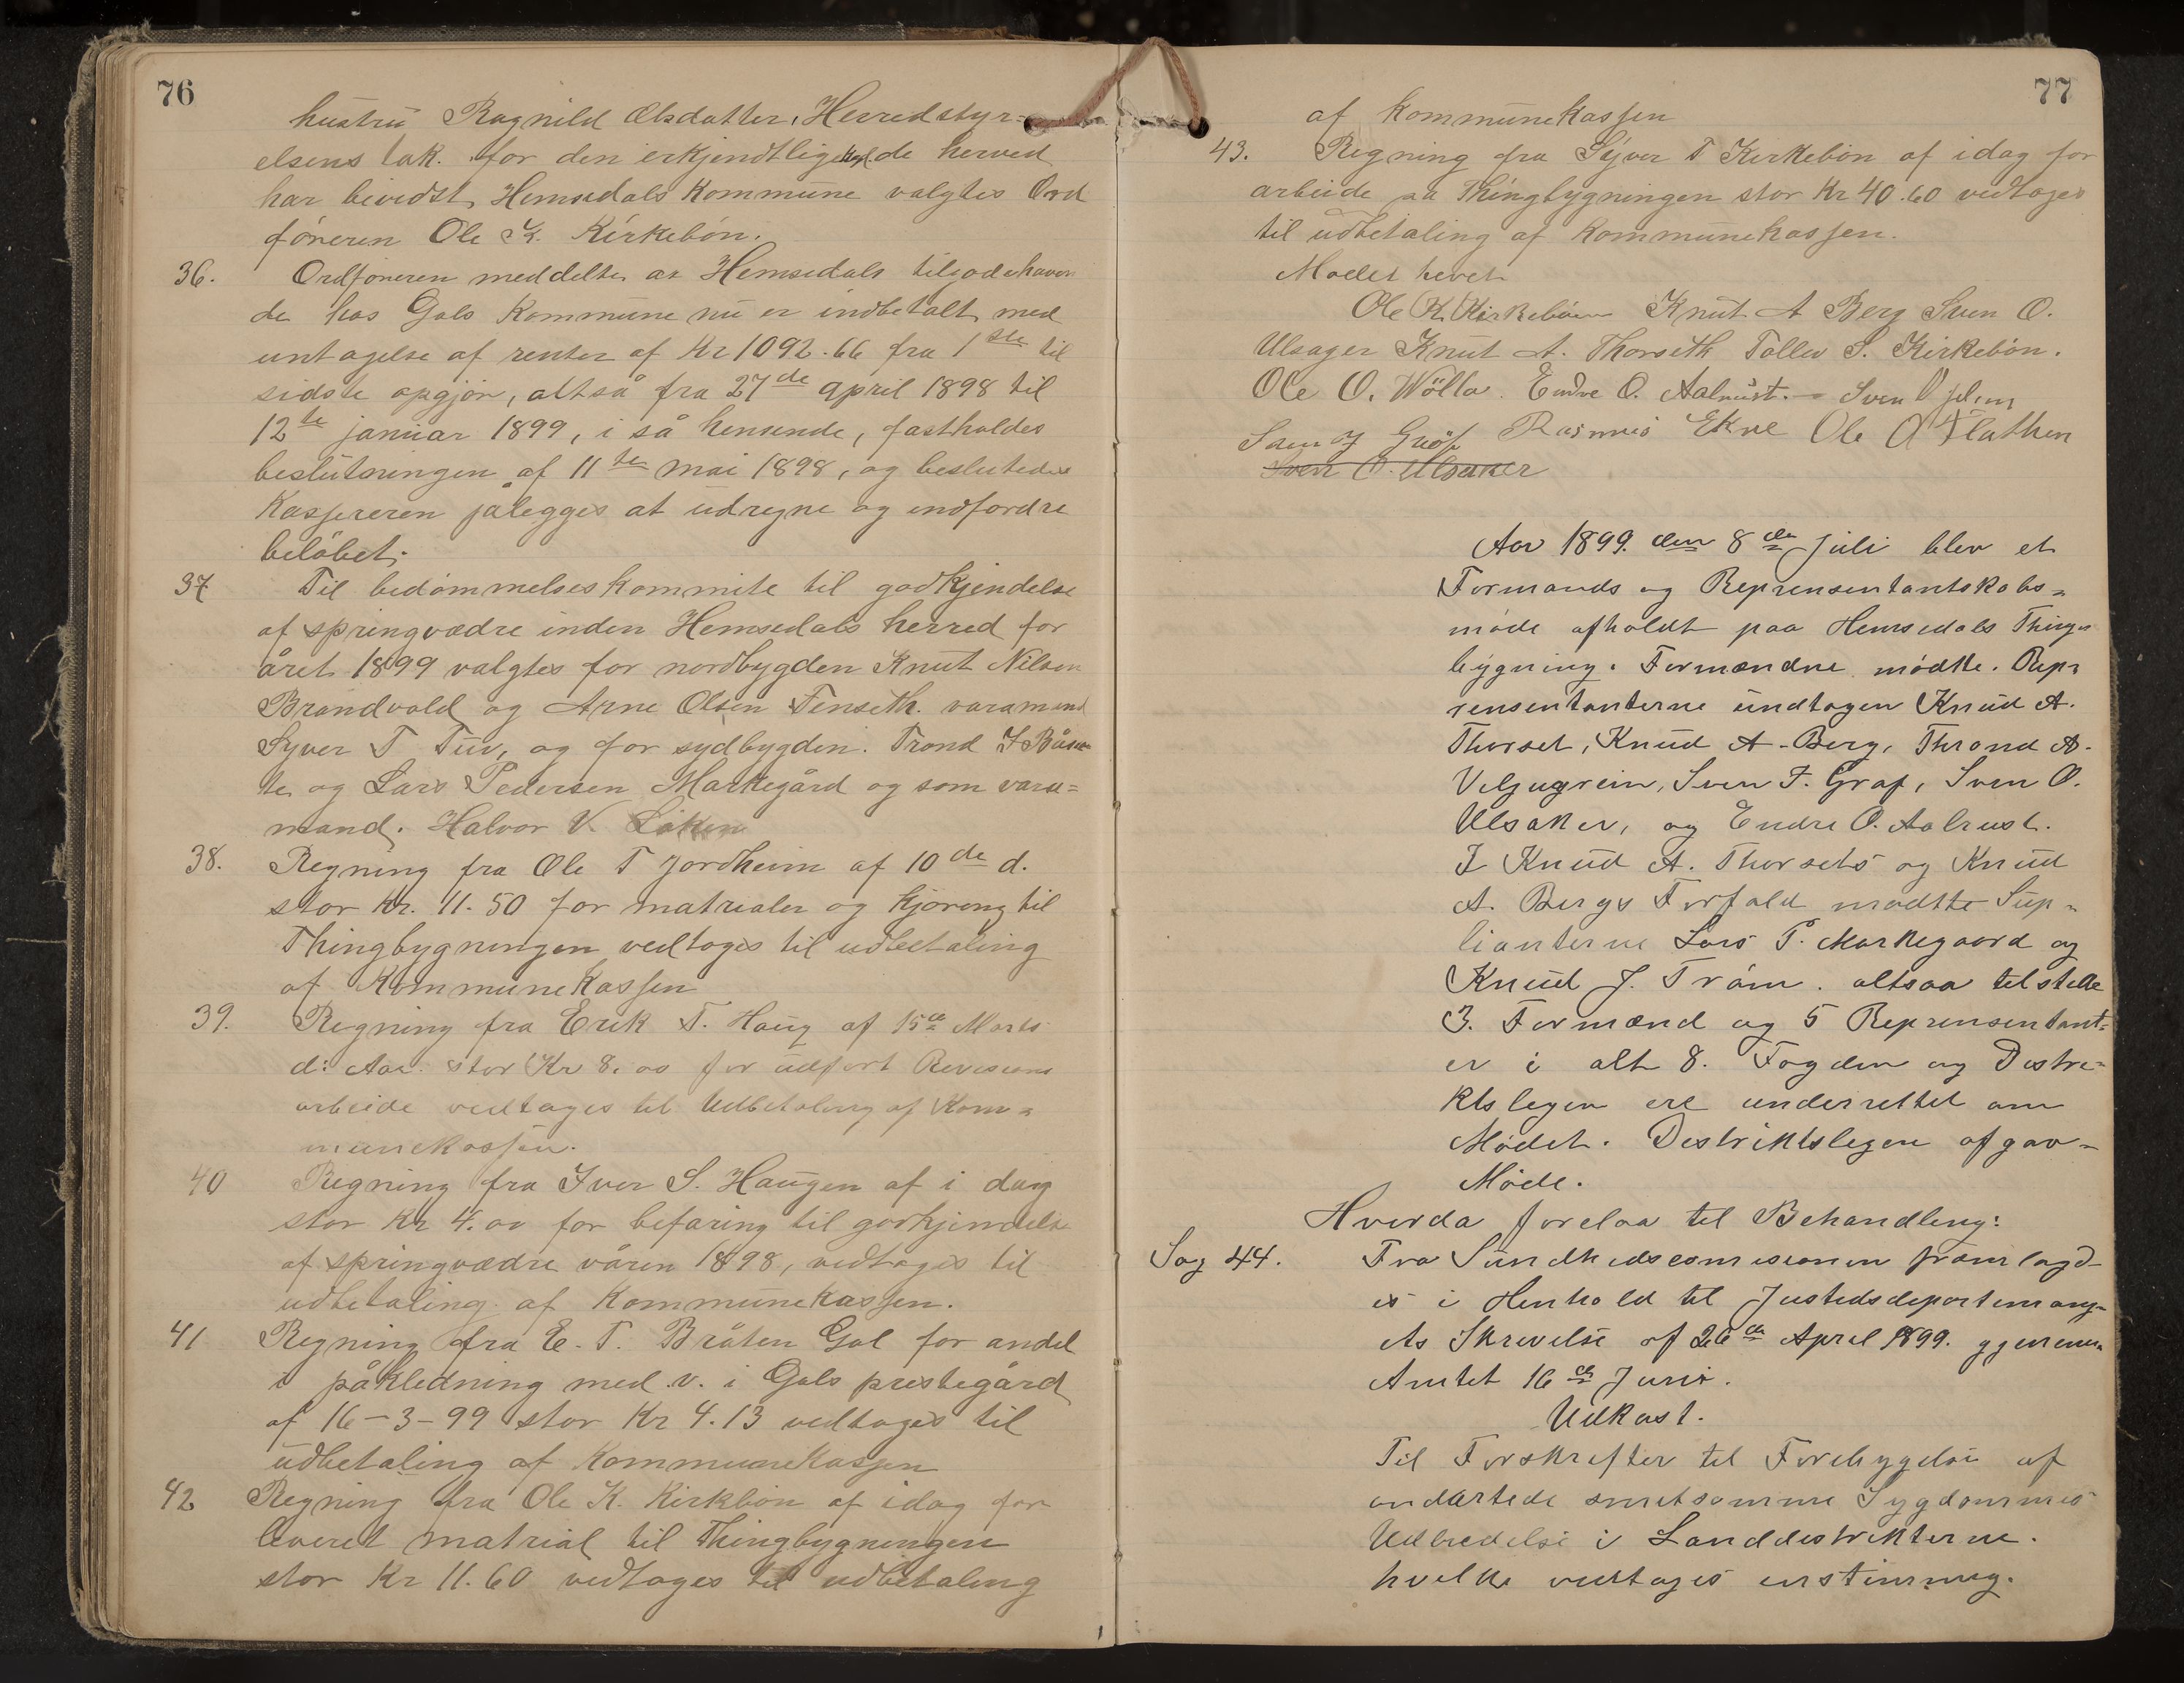 76
hustru Ragnild Olsdatter, Herredstyr=
elsens tak. for den erkjendtlighed de herved
har bevidst Hemsedals Kommune valgtes Ord
føreren Ole K. Kirkebøn.
36. Ordføreren meddelte at Hemsedals tilgodehaven
de hos Gols Kommune nu er indbetalt med
untagelse af renter af Kr 1092.66 fra 1ste til
sidste opgjør, altså fra 27de april 1898 til
12te januar 1899, i så henseende, fastholdes
beslutningen af 11te mai 1898, og beslutedes
Kassereren pålegges at udregne og indfordre
beløbet.
37 Til bedømmelseskommite til godkjendelse
af springvædre inden Hemsedals herred for
året 1899 valgtes for nordbygden Knut Nilsen
Brandvold og Arne Olsen Fenseth. varamend
Syver T Tuv, og for sydbygden. Trond
te og Lars Pedersen Markegård og som vara=
mand. Halvor V. Løken
38. Regning fra Ole T Jordheim af 10de d.
stor Kr. 11.50 for matrialer og kjøreng til
Thingbygningen vedtages til udbetaling
af Kommunekassen
39. Regning fra Erik T. Haug af 15de Marts
d: Aar. stor Kr 8.00 for udført Revisions
arbeide vedtages til Udbetaling af Kom=
munekassen.
40 Regning fra Iver S. Haugen af i dag
stor Kr 4.00 for befaring til godkjendelse
af springvædre våren 1898, vedtages til
udbetaling af Kommunekassen.
41 Regning fra E. T. Bråten Gol for andel
i påkledning med.v. i Gols prestegård
af 16-3-99 stor Kr 4.13 vedtages til
udbetaling af Kommunekassen
42 Regning fra Ole K. Kirkbøn af idag for
leveret matrial til Thingbygningen
stor Kr 11.60 vedtages til udbetaling
77
af Kommunekassen
43. Regning fra Syver T Kirkebøn af idag for
arbeide på Thingbygningen stor Kr 40.60 vedtages
til udbetaling af Kommunekassen.
Mødet hevet
Ole K. Kirkebøen Knut A Berg Sven O.
Ulsager Knut A. Thorseth Tollev S. Kirkebøn.
Ole O. Wølla. Endre O. Aalrust. Sven
Sven Grøf Rasmus Ekre Ole A Flathen
Sven O. Ulsaker
Aar 1899. den 8de Juli blev et
Formands og Reprensentantskabs=
møde afholdt paa Hemsedals Things
bygning. Formændne mødte. Rep=
rensentanterne undtagen Knud A.
Thorset, Knud A. Berg, Thrond A.
Veljugrein, Sven T. Grøf, Sven O.
Ulsaker, og Endre O. Aalrust.
I Knud A. Thorsets og Knud
A. Bergs Forfald mødtte Sup=
lianterne Lars P. Markegaard og
Knud J. Trøim. altsaa tilstede
3. Formænd og 5 Reprensentant=
er i alt 8. Fogden og Distri=
ktslegen ere underrettet om
Mødet. Destriktslegen afgav=
Møde.
Hvorda forelaa til Behandling:
Sag 44. Fra Sundhedscomisionen framlagd
es i Henhold til Justedsdepartemang=
ets Skrevelse af 26de April 1899. gjennem
Amtet 16de Juni.
Udkast.
Til Forskrefter til Forebygelse af
ondartede smitsomme Sygdommes
Udbredelse i Landdestrikterne.
hvilke vedtages enstimmig.